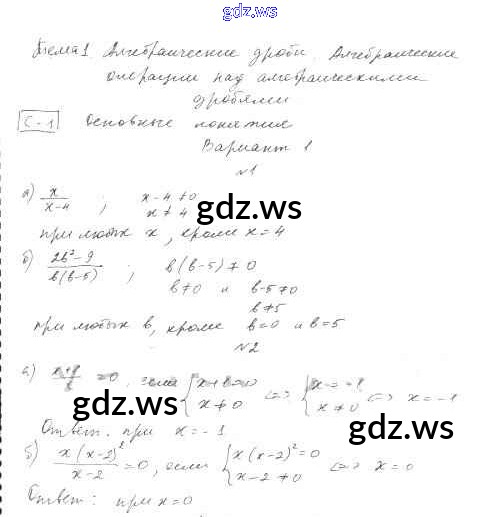 gdz.ws
Тема 1 Алгебраические дроби. Алгебраические
операции над алгебраическими
дробями
С-1 Основные понятия
Вариант 1
№1
а) x/(x-4) ; x-4≠0
x≠4
gdz.ws
при любых x, кроме x=4
б) (2b²-9)/(b(b-5)) ; b(b-5)≠0
b≠0 и b-5≠0
b≠5
при любых b, кроме b=0 и b=5
№2
а) =0, если { x≠0 ⇔ { x≠0 ⇔ x=-1
gdz.ws gdz.ws
Ответ: при x=-1
б) x(x-2)²/(x-2) =0, если { x(x-2)²=0 x-2≠0 ⇔ x=0
Ответ: при x=0